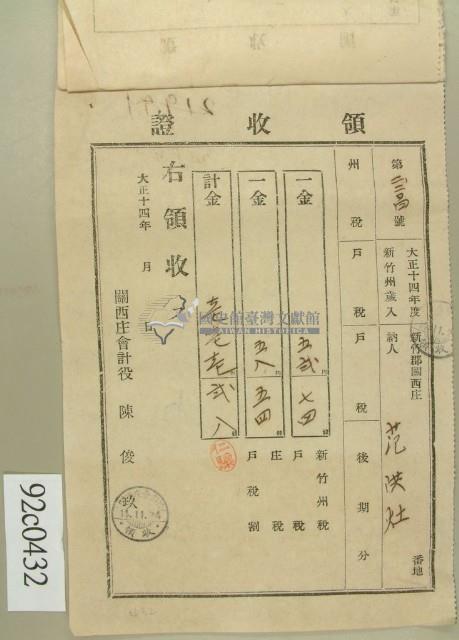 領收證
第 號
大正十四年度 新竹郡關西庄
新竹州歲入 納人 范洪灶 番地
州稅 戶稅 戶稅 後期分
一金 五貳 七四 新竹州稅 戶稅
一金 五八 五四 庄稅 戶稅割
計金 壱壱壱 貳八
右領收
大正十四年 月
關西庄會計役 陳俊玖
國史館臺灣文獻館
TAIWAN HISTORICA
92c0432